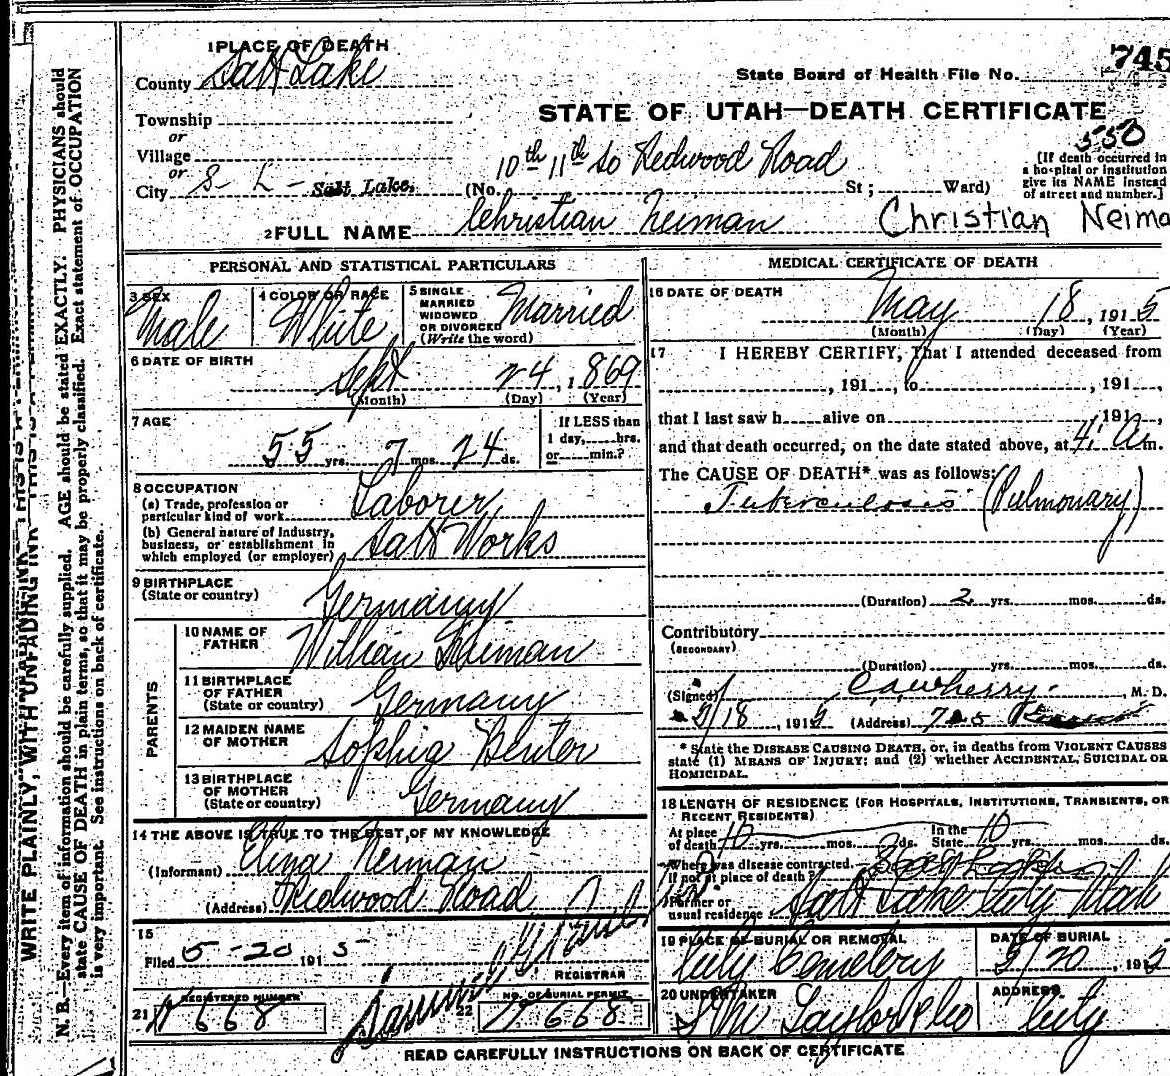 1 PLACE OF DEATH
County Salt Lake
State Board of Health File No. 745
STATE OF UTAH—DEATH CERTIFICATE
550
Township
or
Village
or
City S- L - Salt Lake,
(No. 10th 11th So Redwood Road St; Ward)
[If death occurred in a hospital or institution give its NAME instead of street and number.]
2 FULL NAME Christian Neiman Christian Neima
PERSONAL AND STATISTICAL PARTICULARS
3 SEX Male
4 COLOR OR RACE White
5 SINGLE MARRIED WIDOWED OR DIVORCED (Write the word) Married
6 DATE OF BIRTH
Sept 24, 1869
(Month) (Day) (Year)
7 AGE
55 yrs. 7 mos. 24 ds.
If LESS than 1 day, hrs. or min.?
8 OCCUPATION
(a) Trade, profession or particular kind of work Laborer
(b) General nature of Industry, business, or establishment in which employed (or employer) Salt Works
9 BIRTHPLACE (State or country) Germany
PARENTS
10 NAME OF FATHER William Neiman
11 BIRTHPLACE OF FATHER (State or country) Germany
12 MAIDEN NAME OF MOTHER Sophia Benter
13 BIRTHPLACE OF MOTHER (State or country) Germany
14 THE ABOVE IS TRUE TO THE BEST OF MY KNOWLEDGE
(Informant) Elina Neiman
(Address) Redwood Road
15
Filed 5-20 1915
REGISTRAR
21 REGISTERED NUMBER 668
22 NO. OF BURIAL PERMIT 668
MEDICAL CERTIFICATE OF DEATH
16 DATE OF DEATH
May 18, 1915
(Month) (Day) (Year)
17 I HEREBY CERTIFY, That I attended deceased from
, 191 , to , 191 ,
that I last saw h alive on , 191 ,
and that death occurred, on the date stated above, at 4: A m.
The CAUSE OF DEATH* was as follows:
Tuberculosis (Pulmonary)
(Duration) 2 yrs. mos. ds.
Contributory
(SECONDARY)
(Duration) yrs. mos. ds.
(Signed) , M. D.
5/18, 1915 (Address)
* State the DISEASE CAUSING DEATH, or, in deaths from VIOLENT CAUSES state (1) MEANS OF INJURY; and (2) whether ACCIDENTAL, SUICIDAL OR HOMICIDAL.
18 LENGTH OF RESIDENCE (FOR HOSPITALS, INSTITUTIONS, TRANSIENTS, OR RECENT RESIDENTS)
At place of death 10 yrs. mos. ds. In the State 10 yrs. mos. ds.
Where was disease contracted, if not at place of death?
Former or usual residence Salt Lake City Utah
19 PLACE OF BURIAL OR REMOVAL City Cemetery
DATE OF BURIAL 5/20, 1915
20 UNDERTAKER S M Taylor & Co
ADDRESS City
READ CAREFULLY INSTRUCTIONS ON BACK OF CERTIFICATE
WRITE PLAINLY, WITH UNFADING INK
N. B.—Every item of information should be carefully supplied. AGE should be stated EXACTLY. PHYSICIANS should
state CAUSE OF DEATH in plain terms, so that it may be properly classified. Exact statement of OCCUPATION
is very important. See instructions on back of certificate.